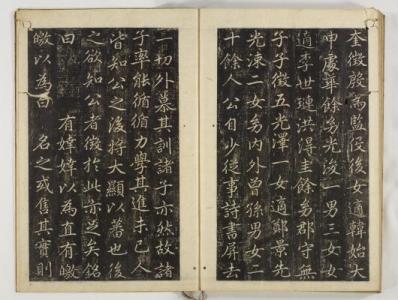 奎徵殷為監役後女適韓始大
申 華餘幼光浚一男三女女
適李世璉洪得圭餘幼郡守無
子子徵五光澤一女適鄭景先
光涑二女幼內外曾孫男女二
十餘人公自少從事詩書屏去
一切外慕其訓諸子亦然故諸
子率能循循力學其進未已人
皆知公之後將大顯以蕃也後
之欲知公者徵於此亦足矣銘
曰 有婞婞以為直有皦
皦以為白 名之或售其實則